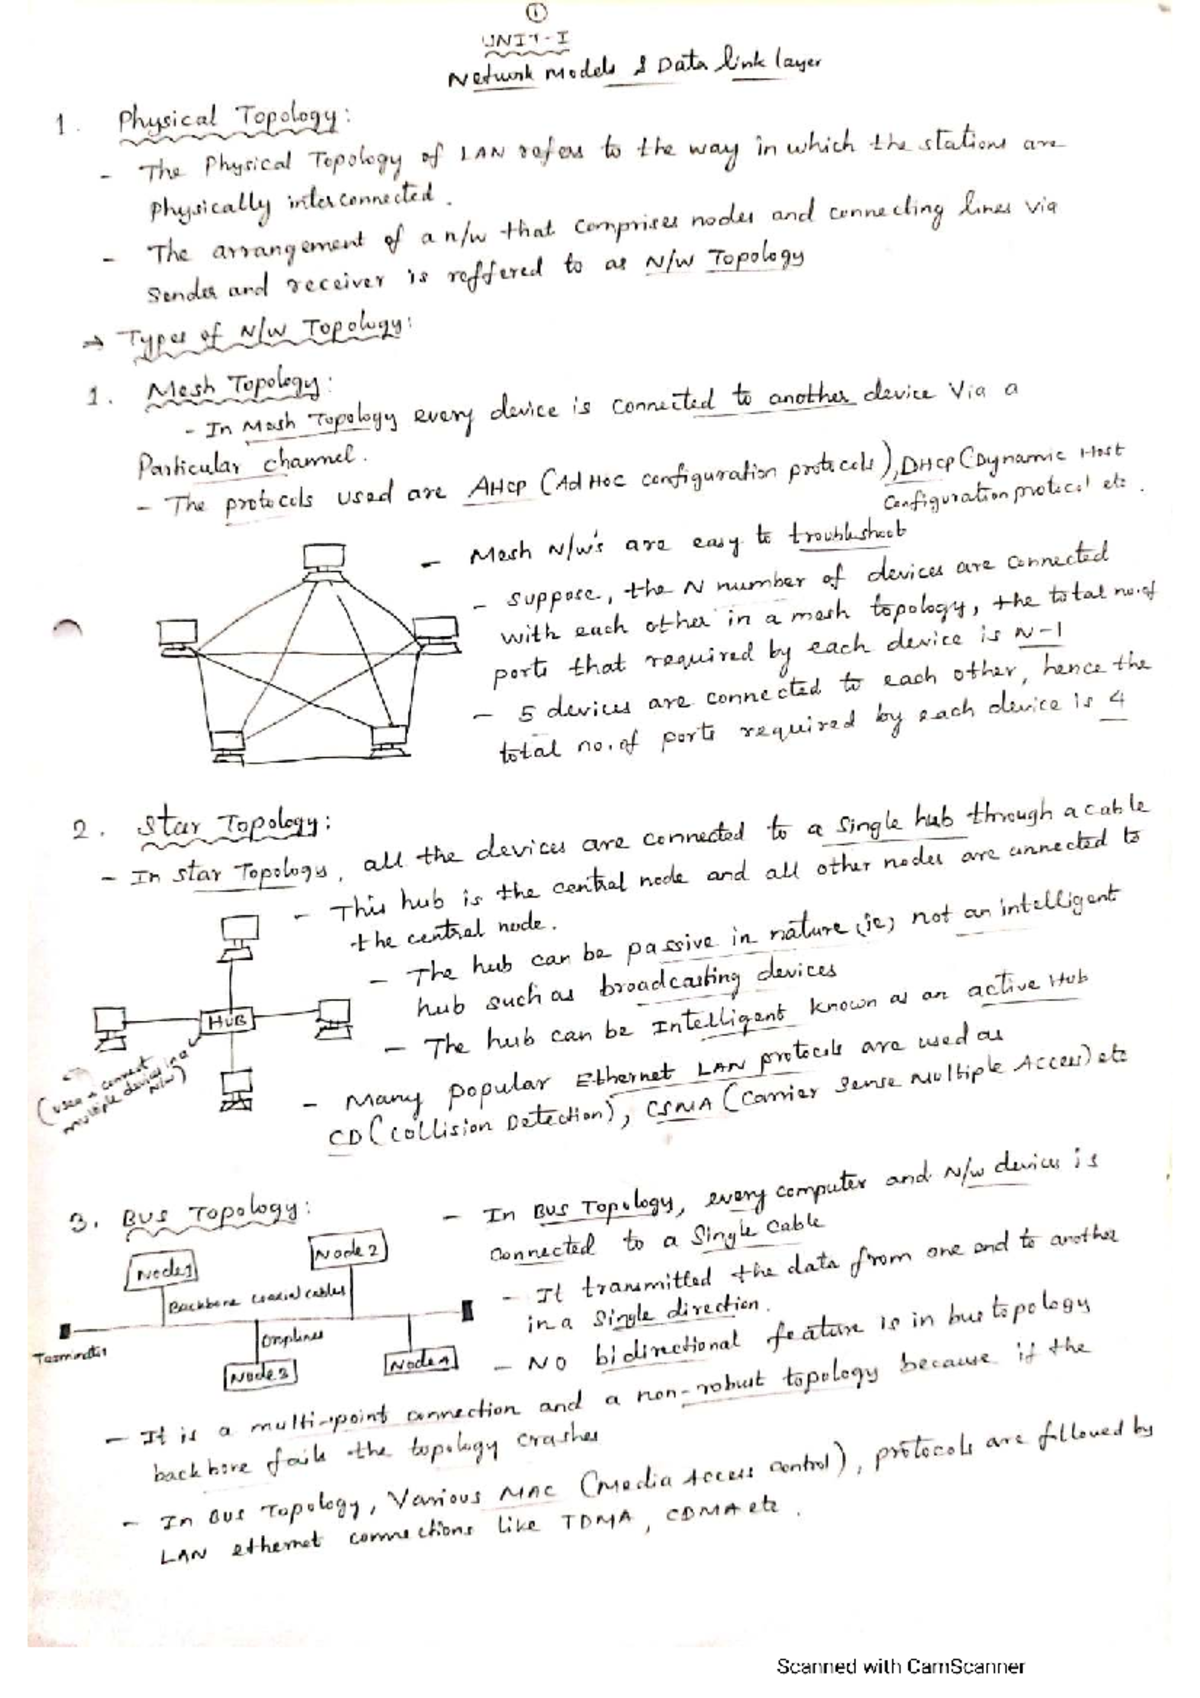 1
UNIT-I
Network Models & Data link layer
1. Physical Topology:
- The Physical Topology of LAN refers to the way in which the stations are
physically interconnected.
- The arrangement of a n/w that comprises nodes and connecting lines via
Sender and receiver is reffered to as N/W Topology
→ Types of N/W Topology:
1. Mesh Topology:
- In Mesh Topology every device is connected to another device Via a
Particular channel.
- The protocols used are AHCP (Ad Hoc configuration protocols), DHCP (Dynamic Host
Configuration protocol etc.
- Mesh N/W's are easy to troubleshoot
- suppose, the N number of devices are connected
with each other in a mesh topology, the total no.of
ports that required by each device is N-1
- 5 devices are connected to each other, hence the
total no.of ports required by each device is 4
2. Star Topology:
- In star Topology, all the devices are connected to a single hub through a cable
- This hub is the central node and all other nodes are connected to
the central node.
- The hub can be passive in nature (ie) not an intelligent
hub such as broadcasting devices
- The hub can be Intelligent known as an active Hub
- Many popular Ethernet LAN protocols are used as
CD (Collision Detection), CSMA (Carrier Sense Multiple Access) etc
HUB
(used to connect
multiple devices in a
N/W)
3. BUS Topology:
- In BUS Topology, every computer and N/W devices is
connected to a Single Cable
- It transmitted the data from one end to another
in a Single direction.
- No bidirectional feature is in bus topology
Node1
Node 2
Backbone coaxial cables
Droplines
Node3
Node4
- It is a multi-point connection and a non-robust topology because if the
backbone fails the topology crashes
- In Bus Topology, Various MAC (Media Access control), protocols are followed by
LAN ethernet connections like TDMA, CDMA etc.
Scanned with CamScanner